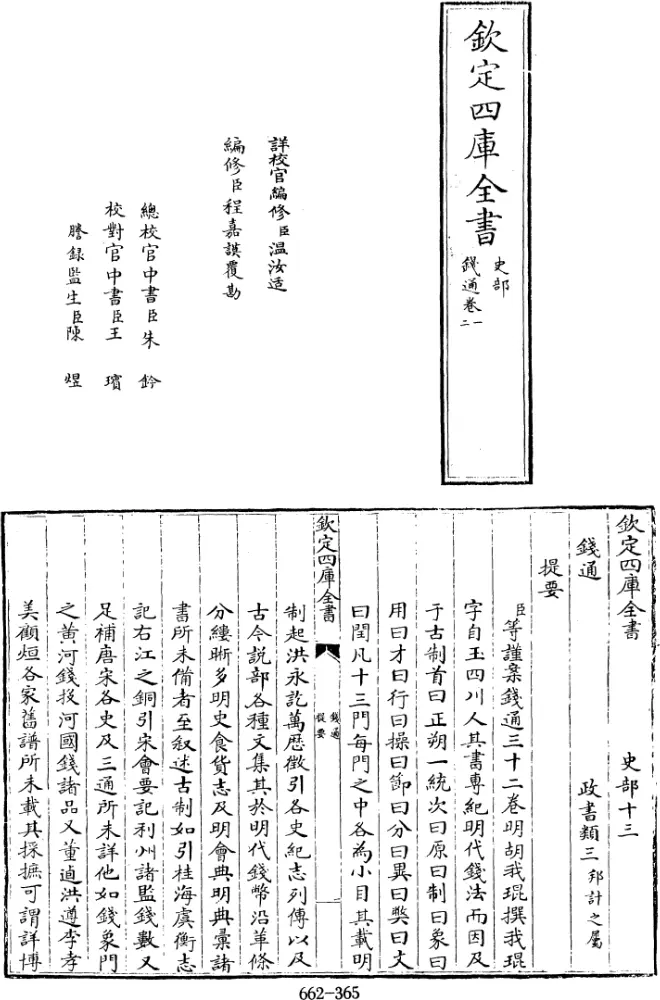 欽定四庫全書
史部
錢通卷一
二
詳校官編修臣温汝适
編修臣程嘉謨覆勘
總校官中書臣朱鈐
校對官中書臣王瓆
謄録監生臣陳煜
欽定四庫全書 史部十三
錢通 政書類三邦計之屬
提要
臣等謹案錢通三十二卷明胡我琨撰我琨
字自玉四川人其書專紀明代錢法而因及
于古制首曰正朔一統次曰原曰制曰象曰
用曰才曰行曰操曰節曰分曰異曰獘曰文
曰閏凡十三門每門之中各為小目其載明
欽定四庫全書
錢通
提要
制起洪永訖萬歷徵引各史紀志列傳以及
古今説部各種文集其於明代錢幣沿革條
分縷晰多明史食貨志及明會典明典彙諸
書所未備者至叙述古制如引桂海虞衡志
記右江之銅引宋會要記利州諸監錢數又
足補唐宋各史及三通所未詳他如錢象門
之黄河錢投河國錢諸品又董逌洪遵李孝
美顧烜各家舊譜所未載其採摭可謂詳博
662-365